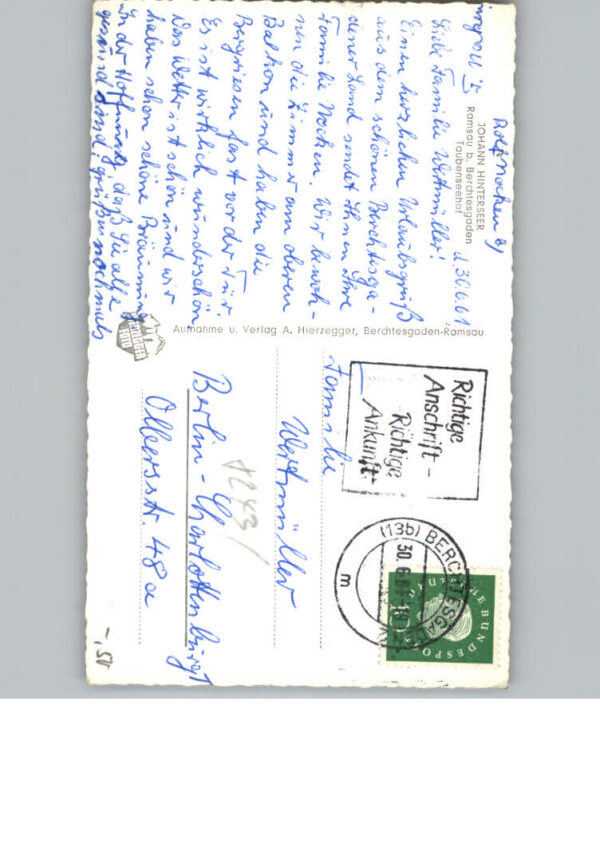 JOHANN HINTERSEER
Ramsau b. Berchtesgaden
Taubenseehof
d. 30.6.61
Liebe Familie Wertmüller!
Einen herzlichen Urlaubsgruß
aus dem schönen Berchtesga-
dener Land sendet Ihnen Ihre
Familie Nochen. Wir bewoh-
nen die Zimmer am oberen
Balkon und haben die
Bergriesen fast vor der Tür.
Es ist wirklich wunderschön
Das Wetter ist schön und wir
haben schon schöne Bräunung
In der Hoffnung, daß Sie alle
gesund sind, grüßen nochmals
Aufnahme u. Verlag A. Hierzegger, Berchtesgaden-Ramsau
Richtige
Anschrift -
Richtige
Ankunft
(13b) BERCHTESGADEN
30.6.61
m
DEUTSCHE BUNDESPOST
Familie
Wertmüller
Berlin-Charlottenburg
Olbersstr. 48a
-,50